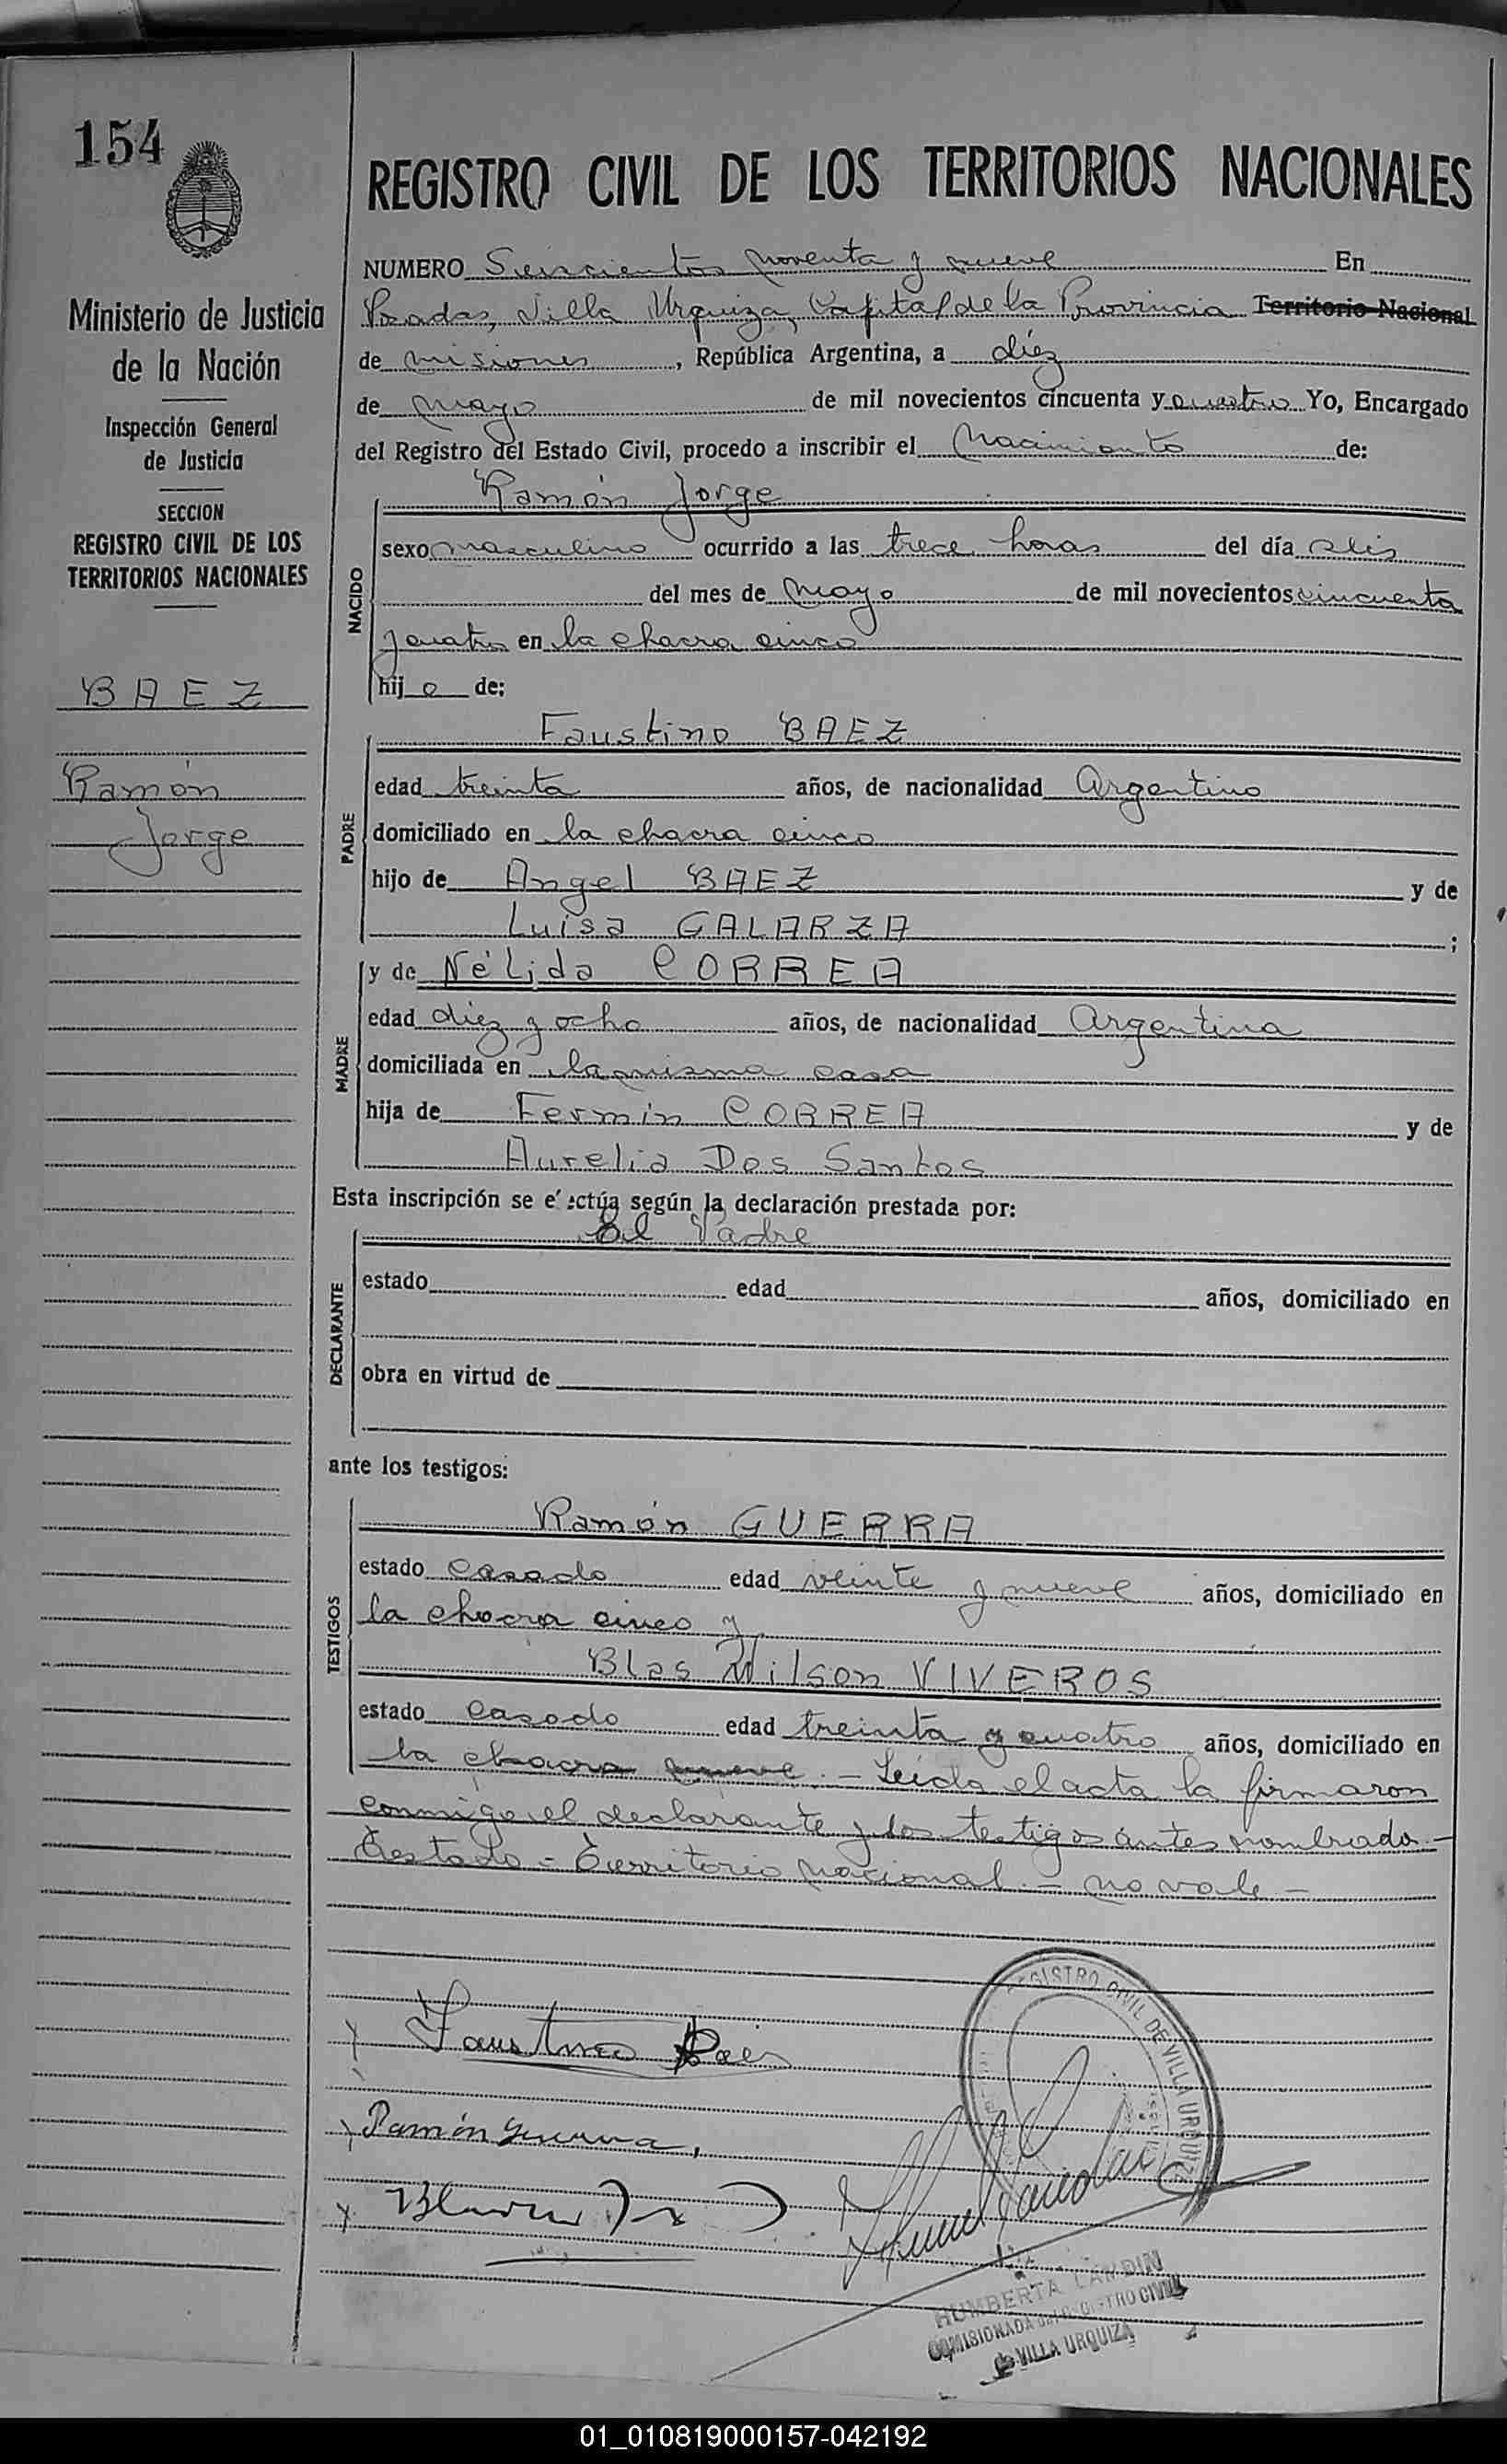 154
REGISTRO CIVIL DE LOS TERRITORIOS NACIONALES
Ministerio de Justicia
de la Nación
Inspección General
de Justicia
SECCION
REGISTRO CIVIL DE LOS
TERRITORIOS NACIONALES
BAEZ
Ramón
Jorge
NUMERO Seiscientos noventa y nueve En
Posadas, Villa Urquiza, Capital de la Provincia Territorio Nacional
de misiones, República Argentina, a diéz
de mayo de mil novecientos cincuenta y cuatro Yo, Encargado
del Registro del Estado Civil, procedo a inscribir el Nacimiento de:
NACIDO
Ramón Jorge
sexo masculino ocurrido a las trece horas del día seis
del mes de mayo de mil novecientos cincuenta
y cuatro en la chacra cinco
hijo de:
PADRE
Faustino BAEZ
edad treinta años, de nacionalidad Argentino
domiciliado en la chacra cinco
hijo de Angel BAEZ y de
Luisa GALARZA ;
MADRE
y de Nélida CORREA
edad diez y ocho años, de nacionalidad Argentina
domiciliada en la misma casa
hija de Fermín CORREA y de
Aurelia Dos Santos
Esta inscripción se efectúa según la declaración prestada por:
DECLARANTE
El Padre
estado edad años, domiciliado en
obra en virtud de
ante los testigos:
TESTIGOS
Ramón GUERRA
estado casado edad veinte y nueve años, domiciliado en
la chacra cinco y
Blas Wilson VIVEROS
estado casado edad treinta y cuatro años, domiciliado en
la chacra nueve. - Leida el acta la firmaron
conmigo el declarante y los testigos antes nombrado. -
Testado = Territorio nacional - no vale -
Faustino Baes
Ramón Guerra,
REGISTRO CIVIL DE VILLA URQUIZA
HUMBERTA LANDIN
COMISIONADA DEL REGISTRO CIVIL
VILLA URQUIZA
01_010819000157-042192